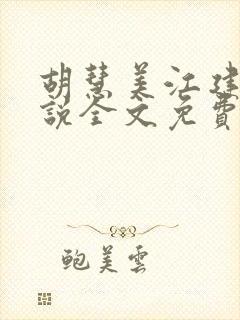 胡慧美江建
說全文免費
鮑美雲